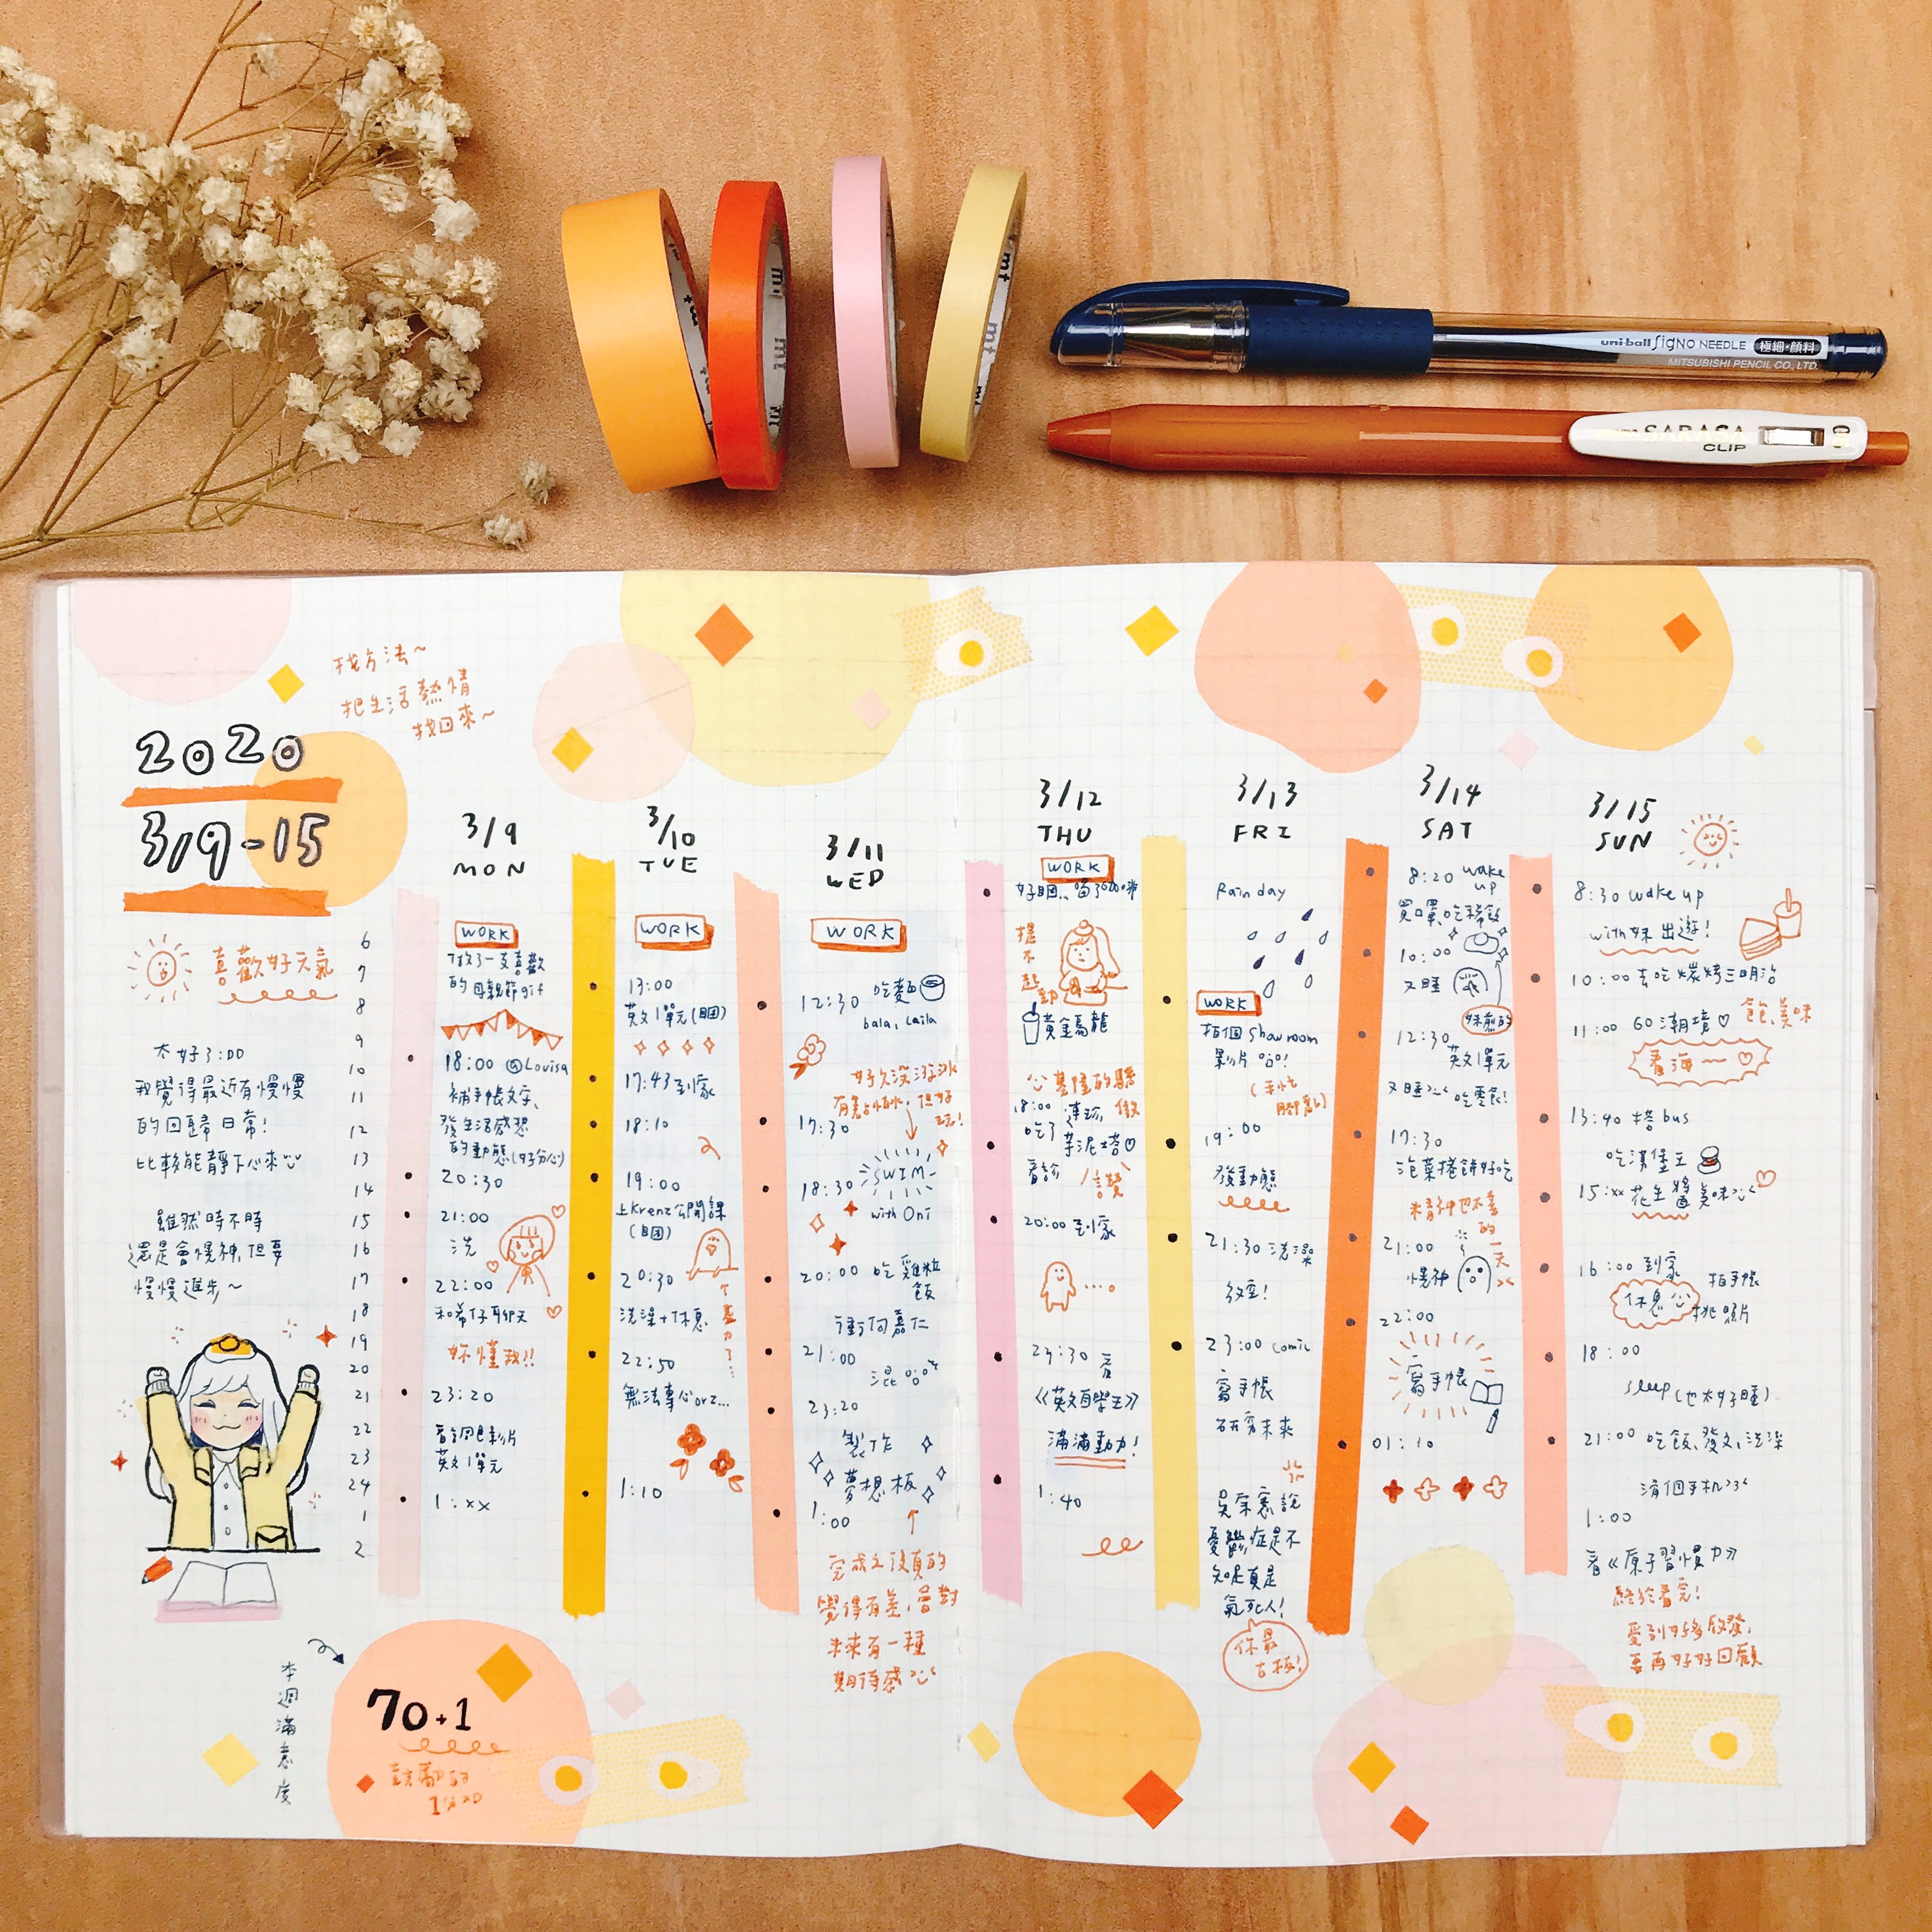 mt
mt
mt
mt
uni-ball Signo NEEDLE 極細・顔料
MITSUBISHI PENCIL CO., LTD.
SARASA
CLIP
找方法~
把生活熱情
找回來~
2020
3/9-15
喜歡好天氣
太好了:DD
我覺得最近有慢慢
的回歸日常!
比較能靜下心來
雖然時不時
還是會慌神,但要
慢慢進步~
6
7
8
9
10
11
12
13
14
15
16
17
18
19
20
21
22
23
24
1
2
本週滿意度
70+1
鼓勵的
1分 XD
3/9
MON
WORK
做了一支喜歡
的母親節gif
18:00 @Louisa
補手帳文字、
發生活感想
的動態(好分心)
20:30
21:00
洗
22:00
和希仔聊天
妳懂我!!
23:20
英文1單元
1:xx
3/10
TUE
WORK
13:00
英文1單元(睏)
17:43到家
18:10
19:00
上Krenz公開課
(睏)
20:30
洗澡+休息
22:50
無法專心orz...
1:10
3/11
WED
WORK
12:30 吃麵
bala, Laila
好久沒游泳
17:30
18:30 SWIM
with Oni
20:00 吃雞粒
飯
衝何嘉仁
21:00
混
23:20
製作
夢想板
1:00
完成之後真的
覺得有差,會對
未來有一種
期待感
3/12
THU
WORK
提不起勁
黃金烏龍
18:00
吃了
芋泥塔
看診
20:00到家
23:30 看
《英文自學王》
滿滿動力!
1:40
3/13
FRI
Rain day
WORK
拍個Showroom
影片
19:00
發動態
21:30 洗澡
放空!
23:00 comic
寫手帳
研究未來
吳宗憲說
憂鬱症是不
知足真是
氣死人!
你最
古板!
3/14
SAT
8:20 wake
up
買口罩,吃稀飯
10:00
又睡
妹煎的
12:30
英文1單元
又睡 吃零食!
17:30
泡菜捲餅好吃
精神也不差
的一天
21:00
慌神
22:00
寫手帳
01:10
3/15
SUN
8:30 wake up
with妹出遊!
10:00 去吃炭烤三明治
飽,美味
11:00 GO 潮境♡
看海~~♡
13:40 搭bus
吃漢堡王
15:xx 花生醬美味
16:00 到家
休息
拍手帳
挑照片
18:00
sleep(也太好睡)
21:00 吃飯、發文、洗澡
滑個手机
1:00
看《原子習慣力》
終於看完!
受到好多啟發,
要再好好回顧